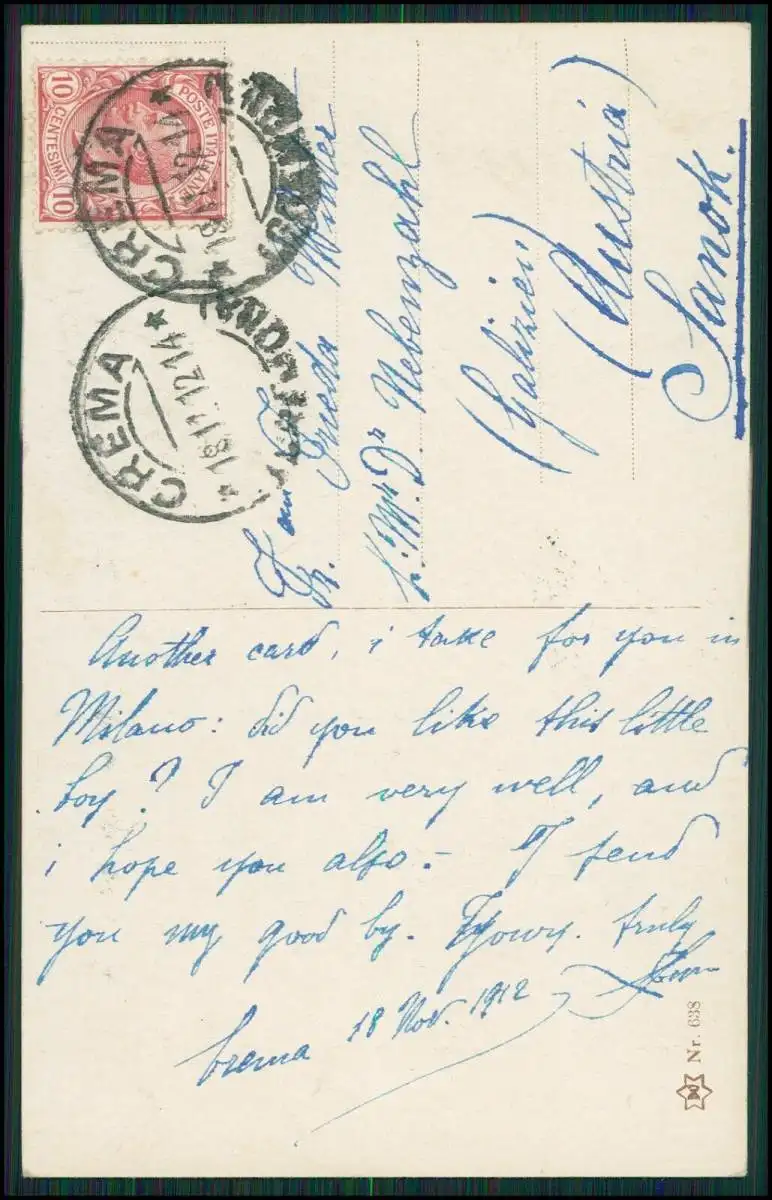 POSTE ITALIANE
10 CENTESIMI 10
CREMA
18 11 12 14
CREMONA
CREMA
18 11 12 14
CREMONA
Frieda Winter
Dr Nebenzahl
(Galizien)
(Austria)
Sanok.
Another card, i take for you in
Milano: did you like this little
boy? I am very well, and
i hope you also.- I send
you my good by. Yours. truly
Crema 18 Nov. 1912
Nr. 638